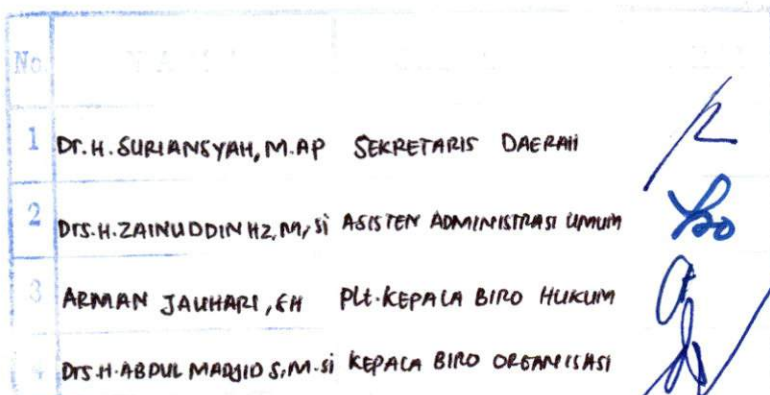 No.
1 Dr. H. SURIANSYAH, M.AP SEKRETARIS DAERAH
2 Drs. H. ZAINUDDIN HZ, M,Si ASISTEN ADMINISTRASI UMUM
3 ARMAN JAUHARI, SH Plt. KEPALA BIRO HUKUM
4 Drs. H. ABDUL MADJID S, M.Si KEPALA BIRO ORGANISASI